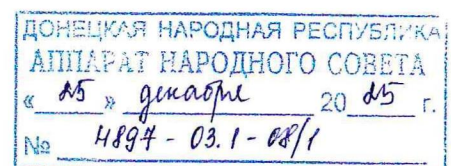 ДОНЕЦКАЯ НАРОДНАЯ РЕСПУБЛИКА
АППАРАТ НАРОДНОГО СОВЕТА
« 25 » декабря 20 25 г.
№ 4897 - 03.1 - 08/1